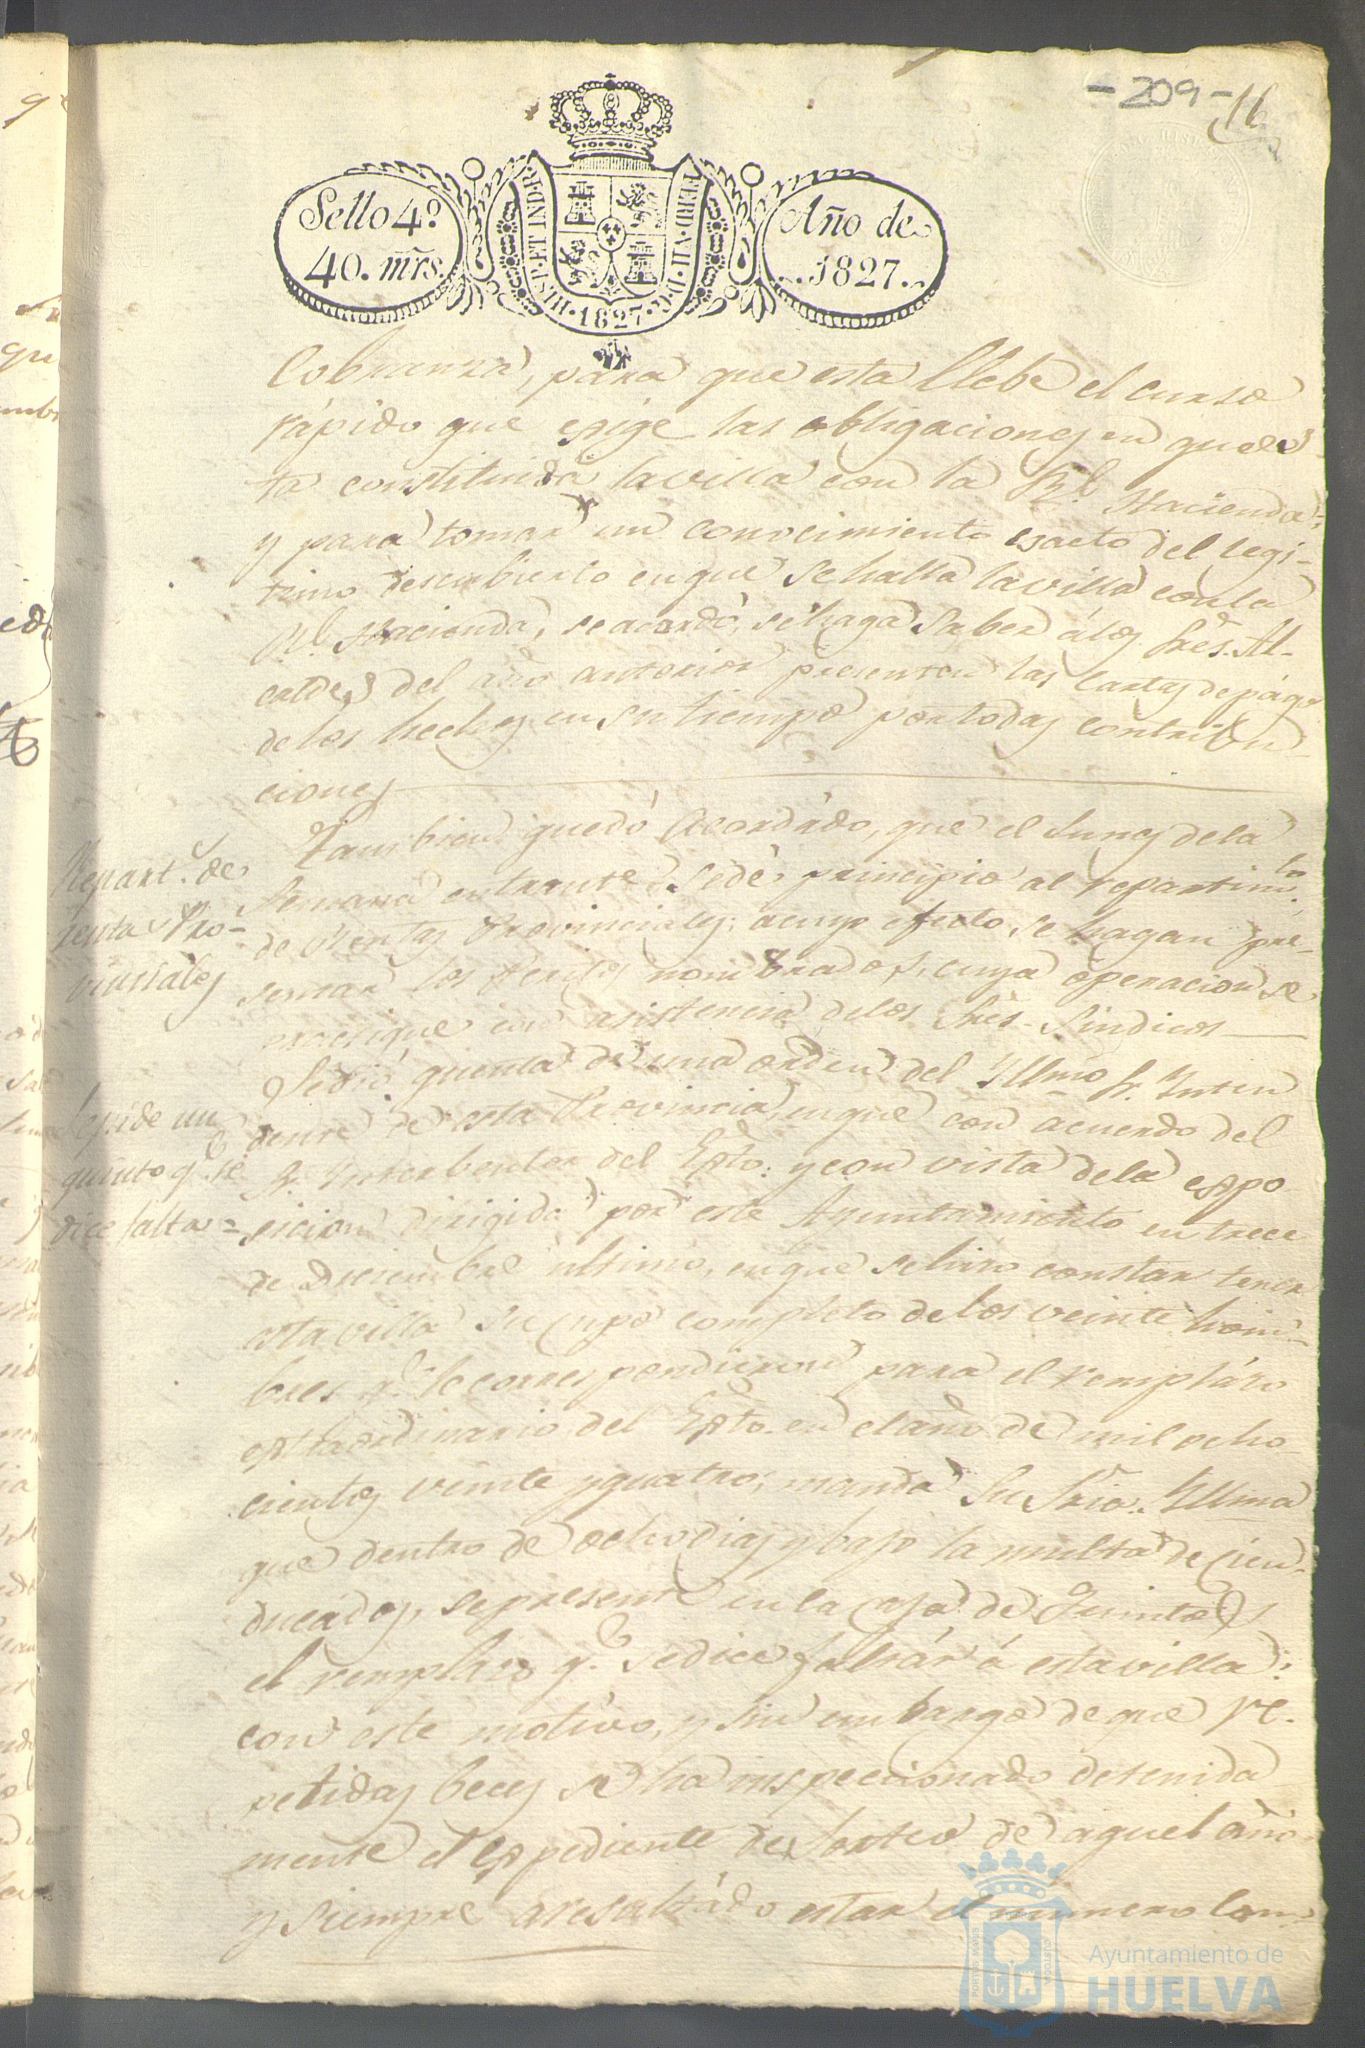 - 209 - 16
Sello 4º
40. mrs.
HISP. ET IND. R.
FERD. VII. D. G.
1827
Año de
1827.
Cobranza, para que esta llebe el curso
rápido que exige las obligaciones en que es-
ta constituida la villa con la Rl. Hacienda;
y para tomar un conocimiento esacto del legi-
timo descubierto en que se halla la villa con la
Rl. Hacienda, se acordó, se haga saber á los Sres. Al-
caldes del año anterior presenten las Cartas de págo
de los hechos en su tiempo por todas contribu-
ciones
Repart.º de
renta Pro-
vinsiales
Tambien quedó acordádo, que el Lunes de la
Semana entrante, se dé principio al repartim.to
de Rentas Provinciales; a cuyo efecto se hagan pre-
sentar los Peritos nombrados, cuya operacion se
practique con asistencia de los Sres. Sindicos
Se pide un
quinto q.e se
dice falta =
Se dió quenta de una orden del Yllmo Sr. Inten
dente de esta Provincia, en que con acuerdo del
Sr. Interbentor del Exto. y con vista de la expo
sicion dirigida por este Ayuntamiento en trece
de Diciembre ultimo, en que se hizo constar tener
esta villa su cupo completo de los veinte hom-
bres q.e le correspondieron para el remplázo
extraordinario del Exto. en el año de mil ocho-
cientos veinte y quatro; manda Su Sria. Yllma
que dentro de ocho dias y bajo la multa de cien
ducádos, se presente en la caja de Quintos
el remplazo q.e se dice faltár á esta villa:
con este motívo, y sin embargo de que re-
petidas beces se ha inspeccionado detenida-
mente el expediente de Sorteo de aquel año
y siempre a resultádo estar el número com-
Ayuntamiento de
HUELVA